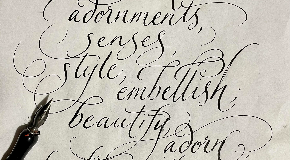 adornments,
senses,
style,
embellish,
beautify
adorn